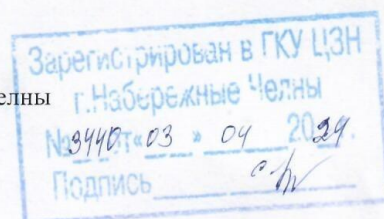 Зарегистрирован в ГКУ ЦЗН
елны г.Набережные Челны
№ 3440 от «03 » 04 2024.
Подпись